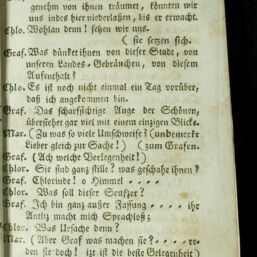 genehm von ihnen träumet, könnten wir
uns indes hier niederlaſſen, bis er erwacht.
Chlo. Wohlan denn! ſehen wir uns.
( ſie ſetzen ſich.
Graf. Was dünket ihnen von dieſer Stadt, von
unſeren Landes-Gebräuchen, von dieſem
Aufenthalt?
Chlo. Es iſt noch nicht einmal ein Tag vorüber,
daß ich angekommen bin.
Graf. Das ſcharfſichtige Auge der Schönen,
überſiehet gar viel mit einem einzigen Blicke.
Mar. (Zu was ſo viele Umſchweife? (unbemerkt
Lieber gleich zur Sache!) (zum Grafen.
Graf. (Ach welche Verlegenheit!)
Chlor. Sie ſind ganz ſtille? was geſchahe ihnen?
Graf. Chlorinde! o Himmel - - - -
Chlor. Was ſoll dieſer Seufzer?
Graf. Ich bin ganz auſſer Faſſung - - - - ihr
Antliz macht mich Sprachloß;
Chlor. Was Urſache denn?
Mar. (Aber Graf was machen ſie? - - - - re-
den ſie doch! izt iſt die beſte Gelegenheit)